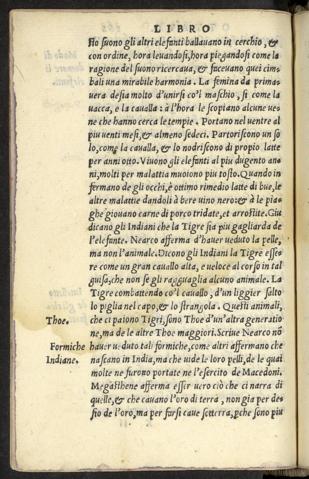 LIBRO
ſto ſuono gli altri elefanti ballauano in cerchio, &
con ordine, hora leuandoſi, hora piegandoſi come la
ragione del ſuono ricercaua, & faceuano quei cim-
bali una mirabile harmonia. La femina da prima-
uera deſia molto d'unirſi co'l maſchio, ſi come la
uacca, e la caualla: a l'hora le ſcoptano alcune ue-
ne che hanno cerca le tempie. Portano nel uentre al
piu uenti meſi, & almeno ſedeci. Partoriſcono un ſo
lo, come la caualla, & lo nodriſcono di proprio latte
per anni otto. Viuono gli elefanti al piu dugento an-
ni, molti per malattia muoiono piu toſto. Quando in
fermano de gli occhi, è ottimo rimedio latte di bue, le
altre malattie dandoli à bere uino nero: & à le pia-
ghe giouano carne di porco tridate, et arroſtite. Giu
dicano gli Indiani che la Tigre ſia piu gagliarda de
l'elefante. Nearco afferma d'hauer ueduto la pelle,
ma non l'animale. Dicono gli Indiani la Tigre eſſe-
re come un gran cauallo alta, e ueloce al corſo in tal
guiſa, che non ſe gli ragguaglia alcuno animale. La
Tigre combattendo co'l cauallo, d'un liggier ſalto
lo piglia nel capo, & lo ſtrangola. Quelli animali,
Thoe. che ci paiono Tigri, ſono Thoe d'un'altra generatio
ne, ma de le altre Thoe maggiori. Scriue Nearco nō
Formiche hauer ueduto tali formiche, come altri affermano che
Indiane. naſcano in India, ma che uide le loro pelli, de le quai
molte ne furono portate ne l'eſercito de Macedoni.
Megaſthene afferma eſſer uero ciò che ci narra di
quelle, & che cauano l'oro di terra, non gia per de-
ſio de l'oro, ma per farſi caue ſotterra, pche ſono piu